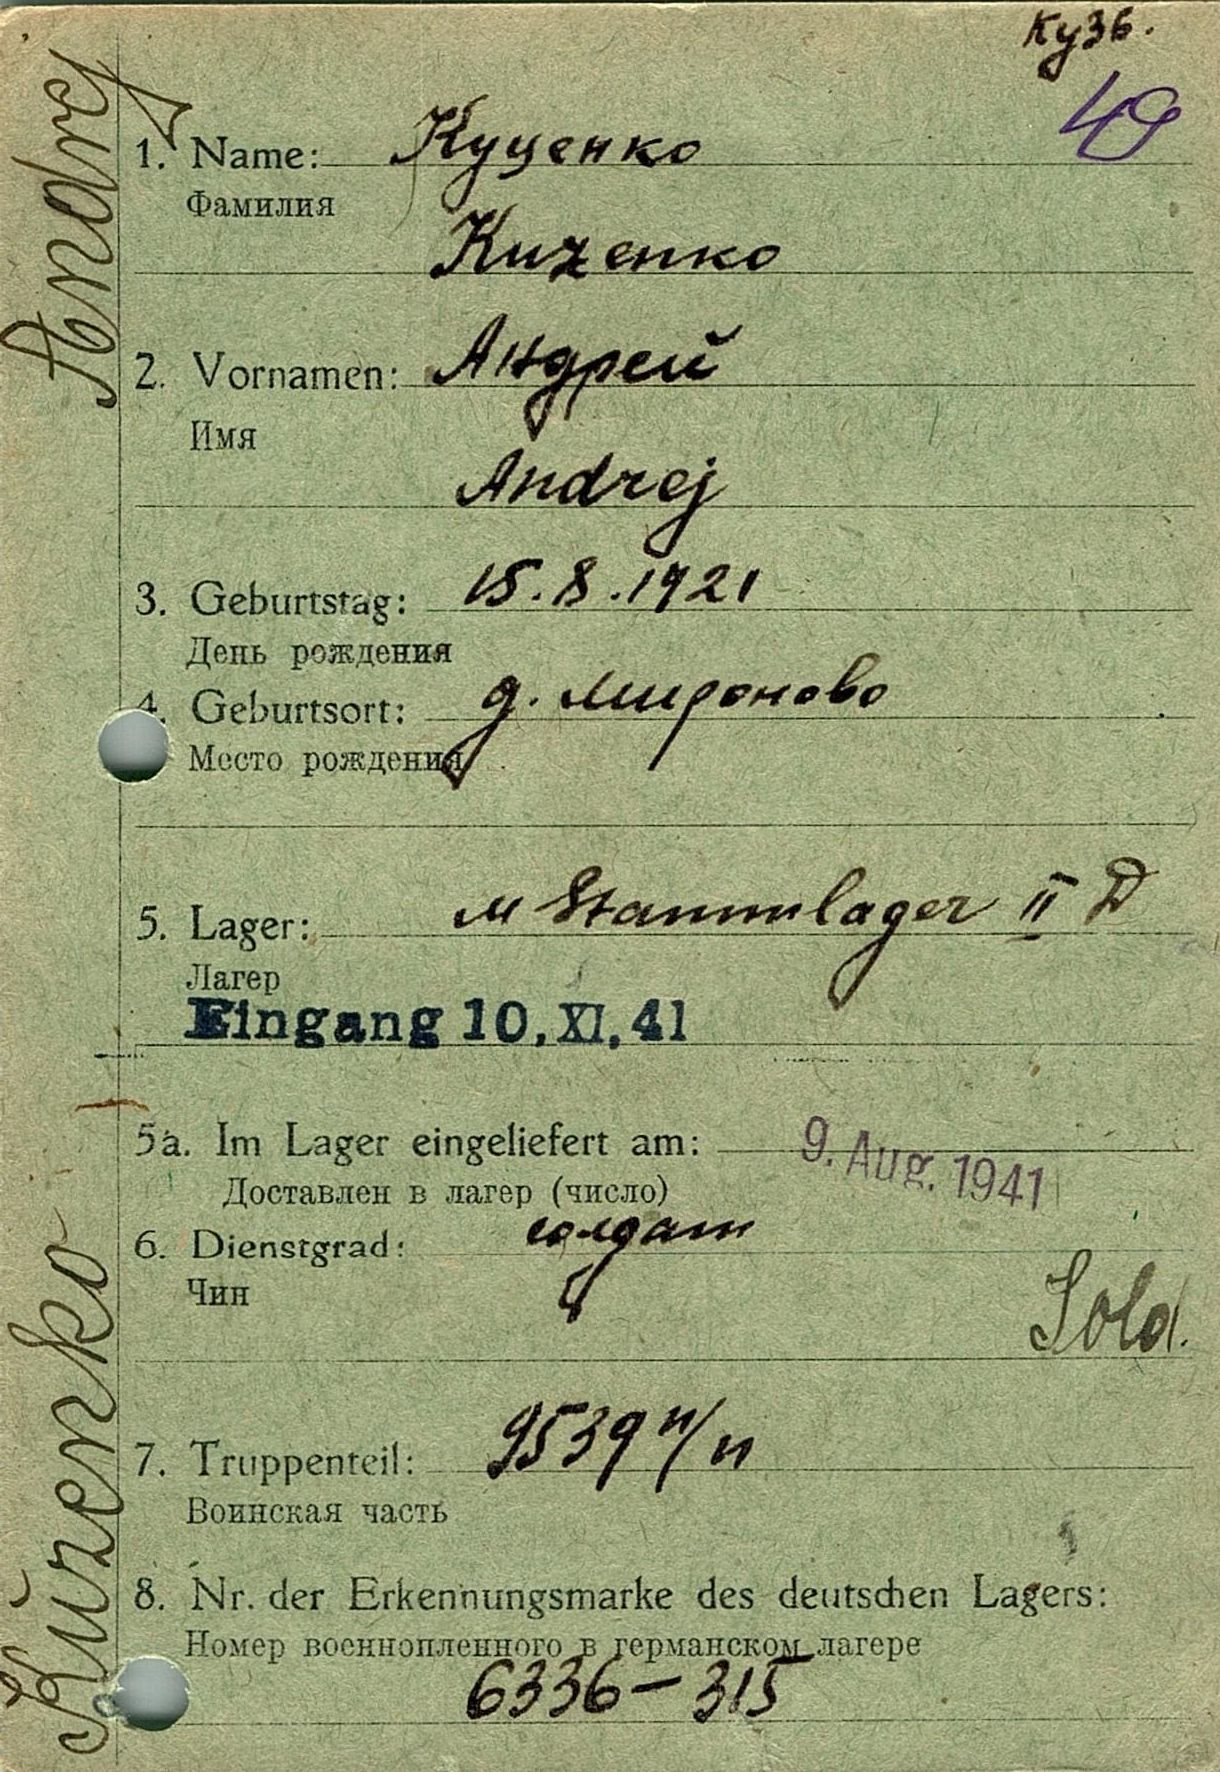 Кузб.
49
1. Name: Куценко
Фамилия
Kuzenko
2. Vornamen: Андрей
Имя
Andrej
3. Geburtstag: 15.8.1921
День рождения
4. Geburtsort: д. Мироново
Место рождения
5. Lager: M Stammlager II D
Лагер
Eingang 10. XI. 41
5a. Im Lager eingeliefert am: 9. Aug. 1941
Доставлен в лагер (число)
6. Dienstgrad: солдат
Чин
Sold.
7. Truppenteil: 9539 п/п
Воинская часть
8. Nr. der Erkennungsmarke des deutschen Lagers:
Номер военнопленного в германском лагере
6336 – 315
Kuzenko Andrej